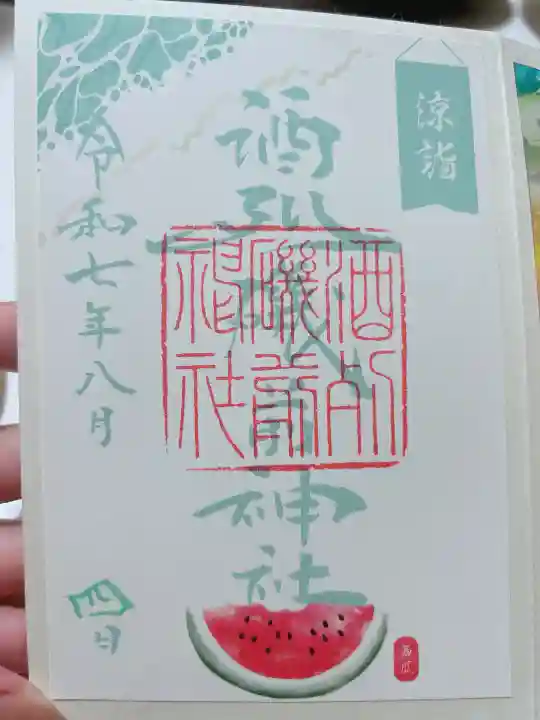 涼詣
酒列磯前神社
酒列磯前神社
令和七年八月
四日
西瓜